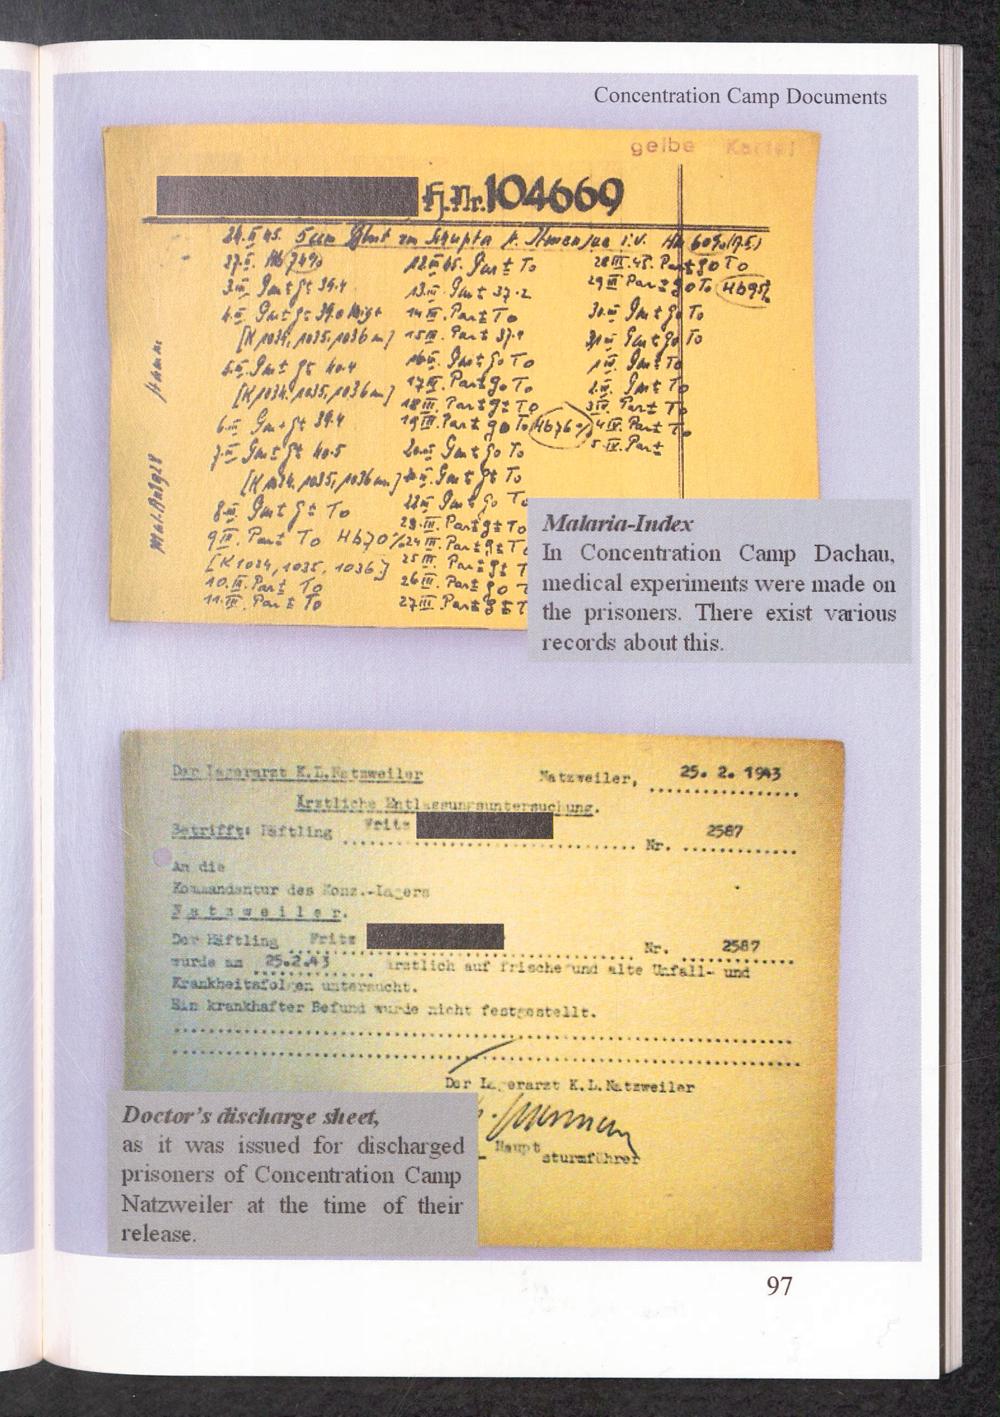 Concentration Camp Documents
gelbe Kartei
H.Nr. 104669
24.II.45. 5 ccm Blut zu Schupta i.v. Hb 60%
27.II. Hb 74%
3.III. Gmt gt 39.4
4.III. Gmt gt 39.0
[K 1034, 1035, 1036 m]
5.III. Gmt gt 40.4
[K 1034, 1035, 1036 m]
6.III. Gm+gt 39.4
7.III. Gmt gt 40.5
[K 1034, 1035, 1036 m]
8.III. Gmt gt To
9.III. Part To Hb 70%
[K 1034, 1035, 1036]
10.III. Part To
11.III. Part To
12.III.45. Gmt To
13.III. Gmt 37.2
14.III. Part To
15.III. Part 37.1
16.III. Gmt go To
17.III. Part go To
18.III. Part gt To
19.III. Part go To Hb 76%
20.III. Gmt go To
21.III. Gmt gt To
22.III. Gmt go To
23.III. Part gt To
24.III. Part gt To
25.III. Part gt T
26.III. Part go T
27.III. Part gt T
28.III.45. Part go To
29.III. Part go To Hb 95%
30.III. Gmt go To
31.III. Gmt go To
1.IV. Gmt To
2.IV. Gmt To
3.IV. Part To
4.IV. Part To
5.IV. Part
Malaria-Index
In Concentration Camp Dachau,
medical experiments were made on
the prisoners. There exist various
records about this.
Der Lagerarzt K.L.Natzweiler Natzweiler, 25. 2. 1943
Ärztliche Entlassungsuntersuchung.
Betrifft: Häftling Fritz Nr. 2587
An die
Kommandantur des Konz.-Lagers
Natzweiler.
Der Häftling Fritz Nr. 2587
wurde am 25.2.43 ärztlich auf frische und alte Unfall- und
Krankheitsfolgen untersucht.
Ein krankhafter Befund wurde nicht festgestellt.
Der Lagerarzt K.L.Natzweiler
Haupt
sturmführer
Doctor's discharge sheet,
as it was issued for discharged
prisoners of Concentration Camp
Natzweiler at the time of their
release.
97